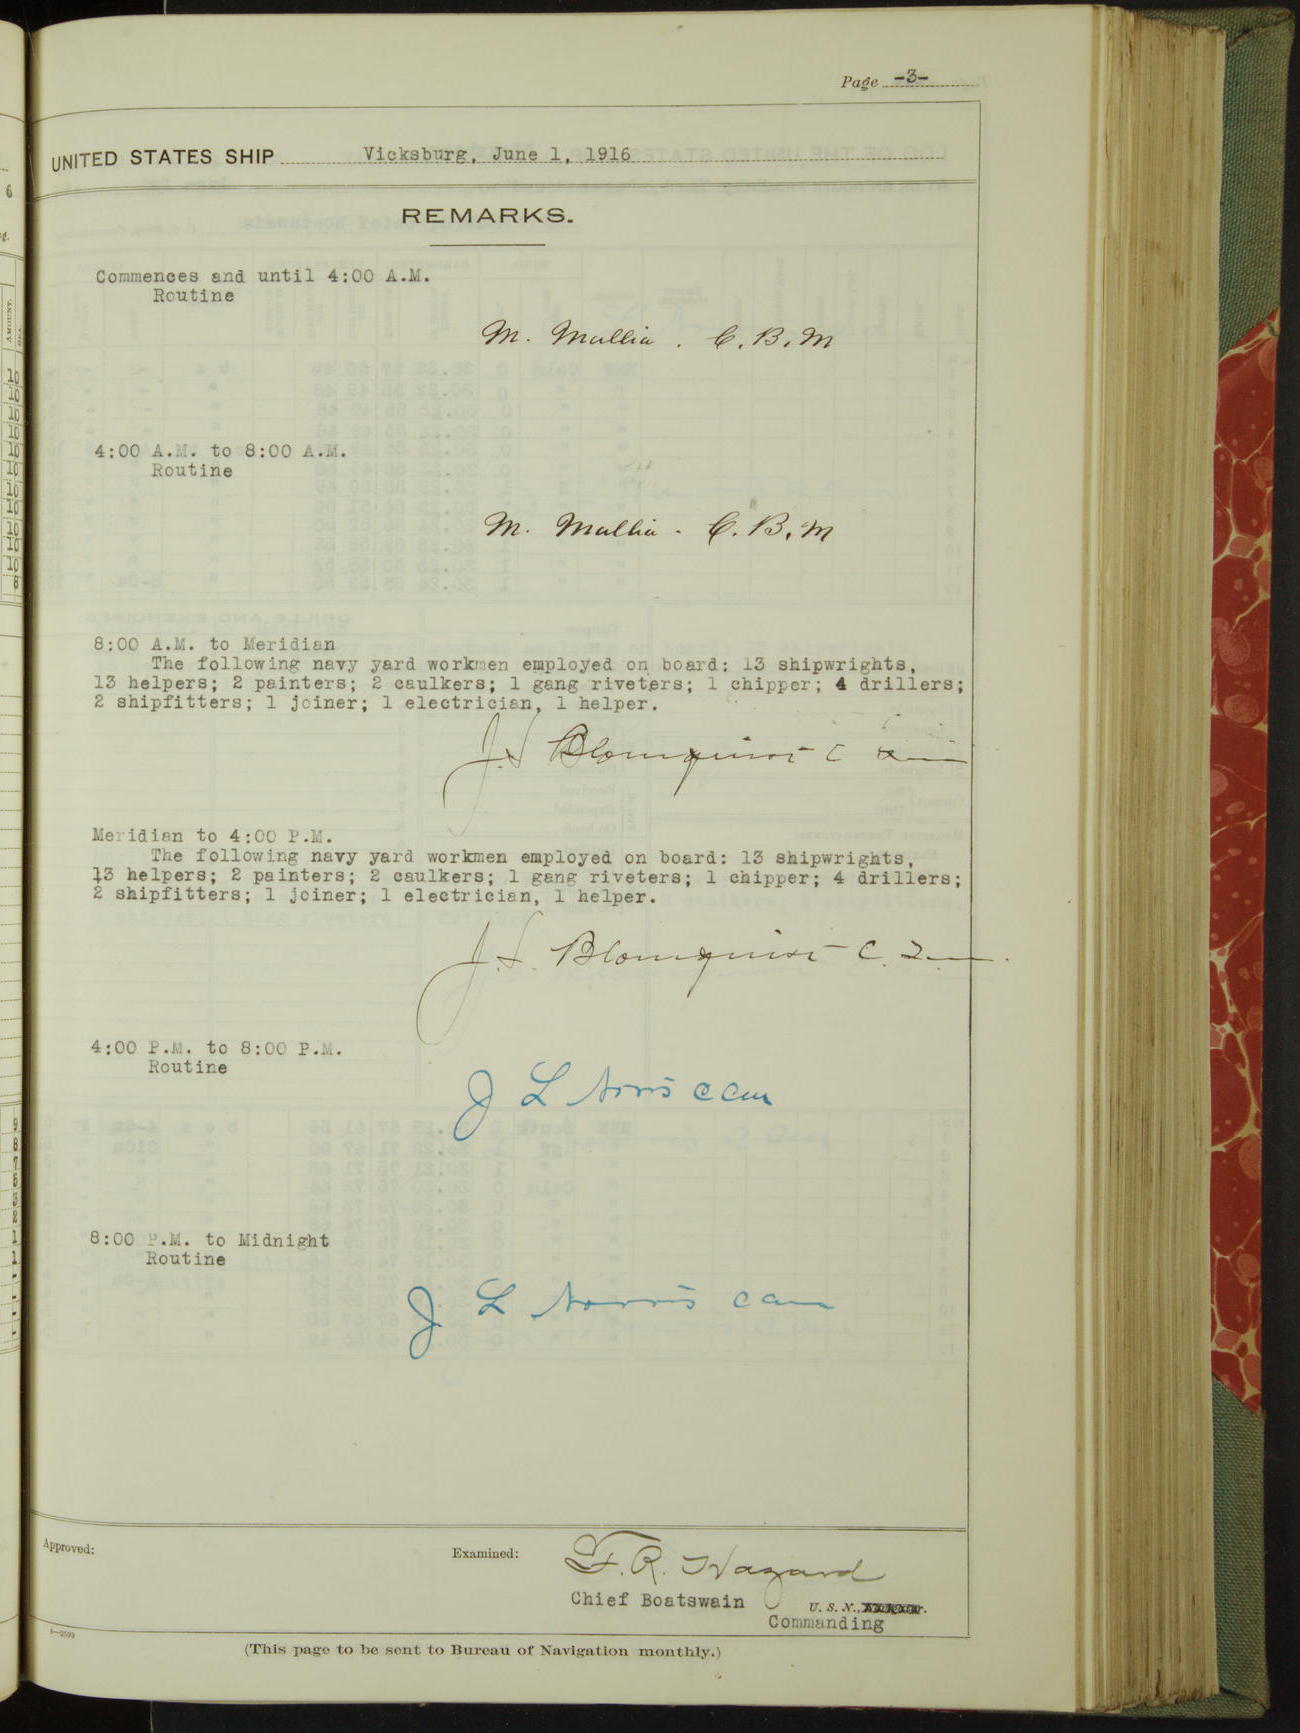 Page -3-
UNITED STATES SHIP Vicksburg, June 1, 1916
REMARKS.
Commences and until 4:00 A.M.
Routine
M. Mullia. C.B.M
4:00 A.M. to 8:00 A.M.
Routine
M. Mullia - C.B.M
8:00 A.M. to Meridian
The following navy yard workmen employed on board: 13 shipwrights,
13 helpers; 2 painters; 2 caulkers; 1 gang riveters; 1 chipper; 4 drillers;
2 shipfitters; 1 joiner; 1 electrician, 1 helper.
J. Blomquist C
Meridian to 4:00 P.M.
The following navy yard workmen employed on board: 13 shipwrights,
13 helpers; 2 painters; 2 caulkers; 1 gang riveters; 1 chipper; 4 drillers;
2 shipfitters; 1 joiner; 1 electrician, 1 helper.
J. Blomquist C.
4:00 P.M. to 8:00 P.M.
Routine
J L Norris
8:00 P.M. to Midnight
Routine
J L Norris
Approved:
Examined:
F.R. Hazard
Chief Boatswain
U. S. N.,
Commanding
(This page to be sent to Bureau of Navigation monthly.)